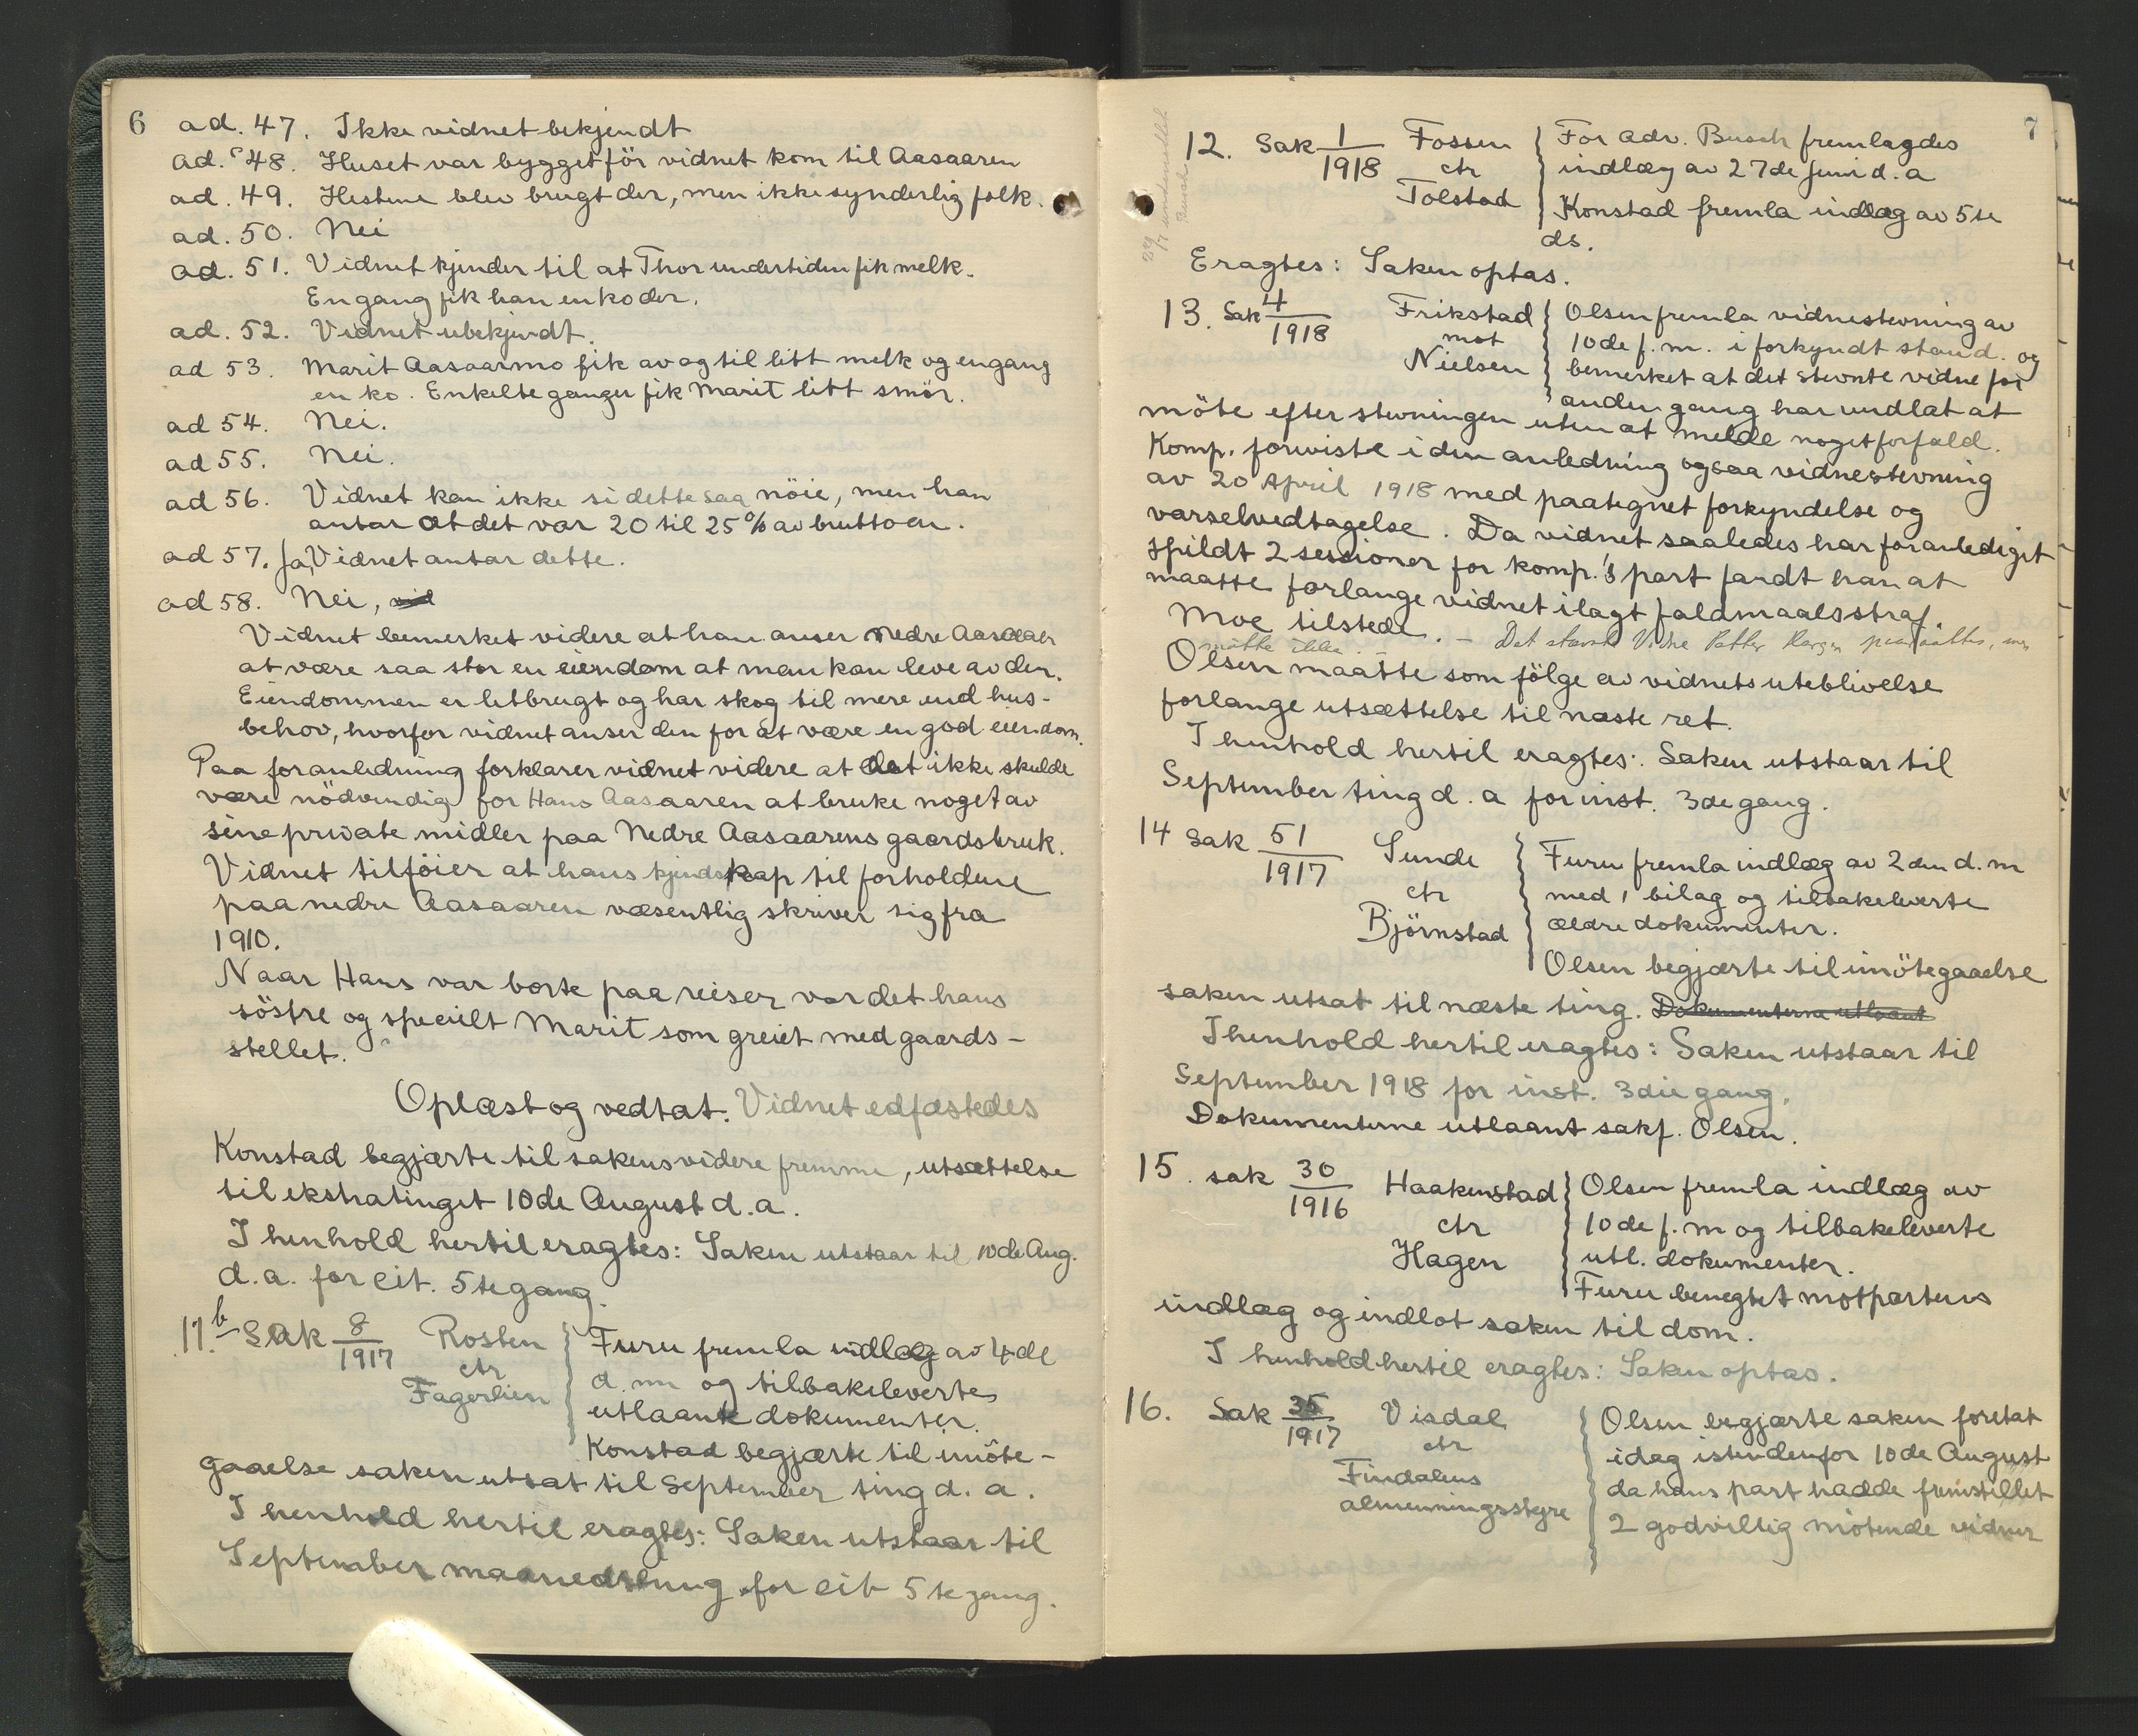 6
ad. 47. Ikke vidnet bekjendt
ad. 48. Huset var bygget för vidnet kom til Aasaaren
ad. 49. Hestene blev brugt der, men ikke synderlig folk.
ad. 50. Nei
ad. 51. Vidnet kjender til at Thor undertiden fik melk.
En gang fik han en ko der.
ad. 52. Vidnet ubekjendt.
ad 53. Marit Aasaarmo fik av og til litt melk og engang
en ko. Enkelte ganger fik Marit litt smör.
ad 54. Nei.
ad 55. Nei.
ad 56. Vidnet kan ikke si dette saa nöie, men han
antar at det var 20 til 25% av bruttoen.
ad 57. Ja, Vidnet antar dette.
ad 58. Nei, vid
Vidnet bemerket videre at han anser nedre Aasaaen
at være saa stor en eiendom at man kan leve av den.
Eiendommen er letbrugt og har skog til mere end hus-
behov, hvorfor vidnet anser den for at være en god eiendom.
Paa foranledning forklarer vidnet videre at det ikke skulde
være nödvendig for Hans Aasaaren at bruke noget av
sine private midler paa Nedre Aasaarens gaardsbruk.
Vidnet tilföier at hans kjendskap til forholdene
paa nedre Aasaaren væsentlig skriver sig fra
1910.
Naar Hans var borte paa reiser var det hans
söstre og specielt Marit som greiet med gaards-
stellet.
Oplæst og vedtat. Vidnet edfæstedes
Konstad begjærte til sakens videre fremme, utsættelse
til ekstratinget 10de August d.a.
I henhold hertil eragtes: Saken utstaar til 10de Aug.
d.a. for cit. 5te gang.
11.b Sak 8/1917 Rosten ctr Fagerlien
Furu fremla indlæg av 4de
d.m. og tilbakeleverte
utlaante dokumenter.
Konstad begjærte til imöte-
gaaelse saken utsat til September ting d. a.
I henhold hertil eragtes: Saken utstaar til
September maanedsting for cit 5te gang.
7
12. Sak 1/1918 Fossen ctr Tolstad
For adv. Busch fremlagdes
indlæg av 27de Juni d.a
Konstad fremla indlæg av 5te
ds.
Eragtes: Saken optas.
13. Sak 4/1918 Frikstad mot Nielsen
Olsen fremla vidnestevning av
10de f.m. i forkyndt stand. og
bemerket at det stevnte vidne for
anden gang har undlat at
möte efter stevningen uten at melde noget forfald.
Komp. foreviste i den anledning ogsaa vidnestevning
av 20 April 1918 med paategnet forkyndelse og
varselvedtagelse. Da vidnet saaledes har foranlediget
spildt 2 sessioner for komp.'s part fandt han at
maatte forlange vidnet ilagt faldmaalsstraf.
Moe tilstede. – Det stevnte Vidne Petter Hagen paaraabtes, men
mötte ikke.
Olsen maatte som fölge av vidnets uteblivelse
forlange utsættelse til næste ret.
I henhold hertil eragtes: Saken utstaar til
September ting d.a for inst. 3de gang.
14 Sak 51/1917 Sunde ctr Björnstad
Furu fremla indlæg av 2den d.m
med 1 bilag og tilbakeleverte
ældre dokumenter.
Olsen begjærte til imötegaaelse
saken utsat til næste ting. Dokumenterne utlaant
I henhold hertil eragtes: Saken utstaar til
September 1918 for inst. 3die gang.
Dokumenterne utlaant sakf. Olsen.
15. sak 30/1916 Haakenstad ctr Hagen
Olsen fremla indlæg av
10de f.m og tilbakeleverte
utl. dokumenter.
Furu benegtet motpartens
indlæg og indlot saken til dom.
I henhold hertil eragtes: Saken optas.
16. Sak 35/1917 Visdal ctr Findalens almenningsstyre
Olsen begjærte saken foretat
idag istedenfor 10de August
da hans part hadde fremstillet
2 godvillig mötende vidner